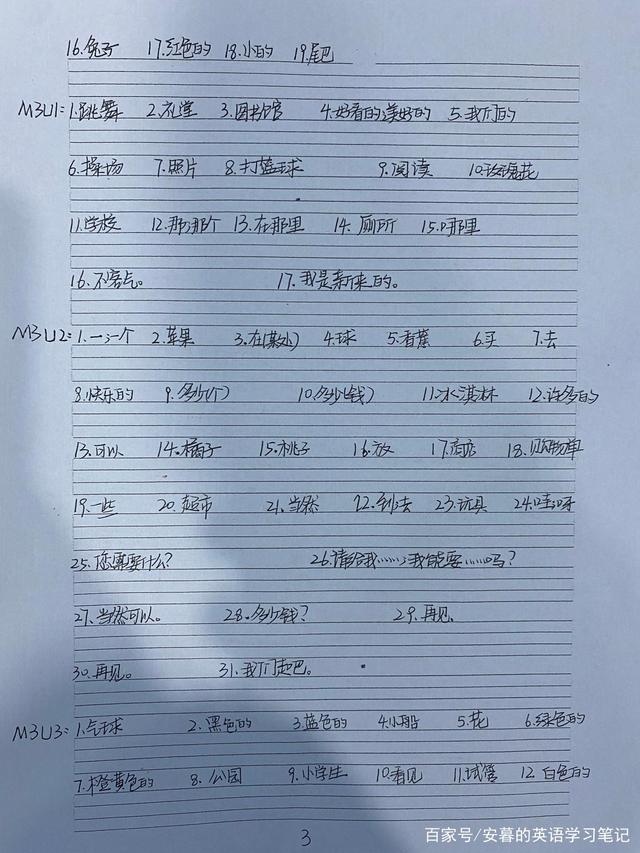 16.兔子 17.红色的 18.小的 19.尾巴
M3U1: 1.跳舞 2.礼堂 3.图书馆 4.好看的;美好的 5.我们的
6.操场 7.照片 8.打篮球 9.阅读 10.玫瑰花
11.学校 12.那;那个 13.在那里 14.厕所 15.哪里
16.不客气。 17.我是新来的。
M3U2: 1.一;一个 2.苹果 3.在(某处) 4.球 5.香蕉 6.买 7.去
8.快乐的 9.多少(个) 10.多少(钱) 11.冰淇淋 12.许多的
13.可以 14.橘子 15.桃子 16.放 17.商店 18.购物单
19.一些 20.超市 21.当然 22.到;去 23.玩具 24.哇;呀
25.您需要什么? 26.请给我……;我能要……吗?
27.当然可以。 28.多少钱? 29.再见。
30.再见。 31.我们走吧。
M3U3: 1.气球 2.黑色的 3.蓝色的 4.小船 5.花 6.绿色的
7.橙黄色的 8.公园 9.小学生 10.看见 11.试管 12.白色的
3
百家号/安暮的英语学习笔记